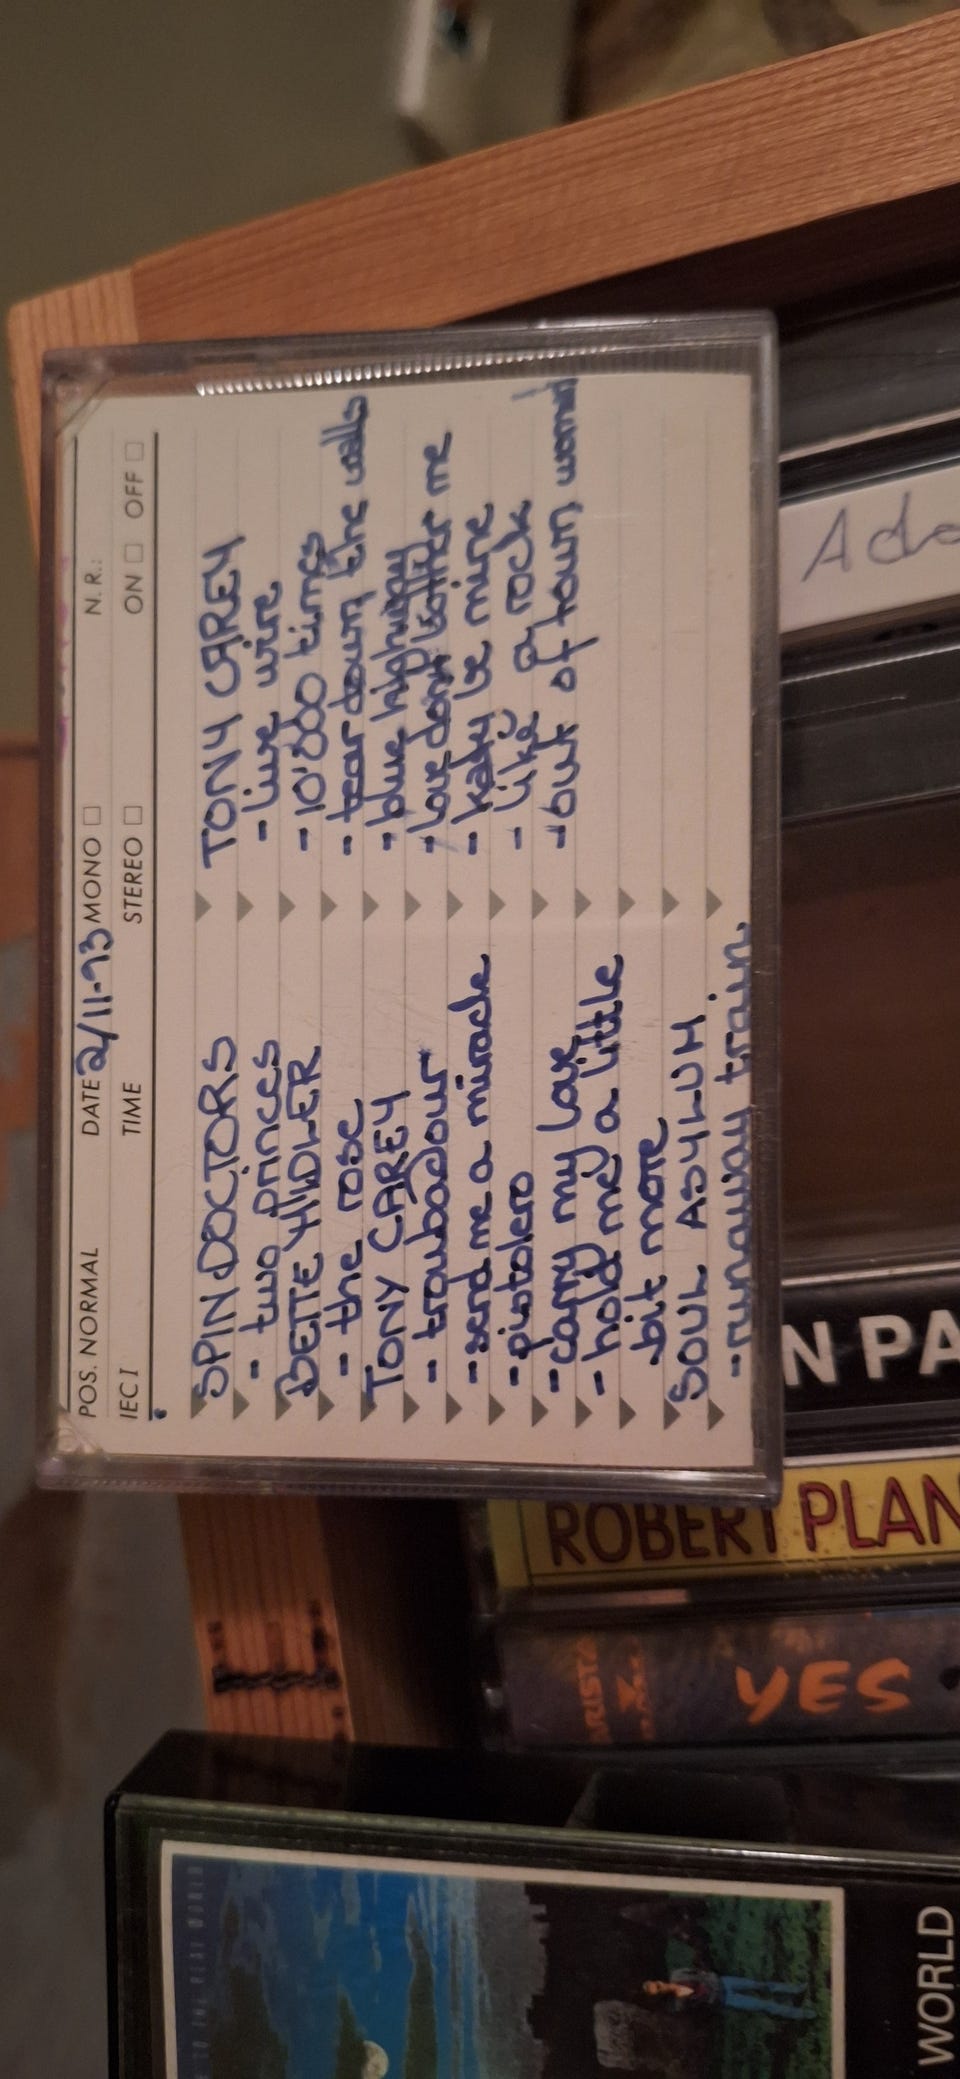 POS. NORMAL DATE 2/11-93 MONO □ N.R.:
IEC I TIME STEREO □ ON □ OFF □
SPIN DOCTORS
- two princes
BETTE MIDLER
- the rose
TONY CAREY
- troubadour
- send me a miracle
- pistolero
- carry my love
- hold me a little
bit more
SOUL ASYLUM
- runaway train
TONY CAREY
- live wire
- 10'000 times
- tear down the walls
- blue highway
- love don't bother me
- katy be mine
- like a rock
- out of town woman
Ade
N PA
ROBERT PLAN
ARISTA
YES
TO THE REAL WORLD
WORLD